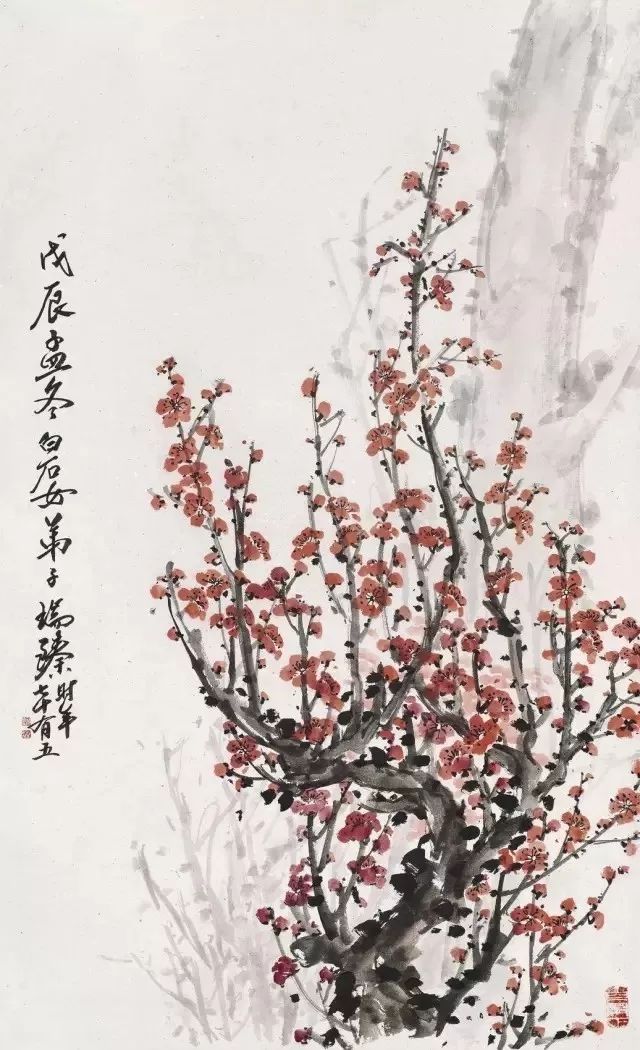 戊辰孟冬白石女弟子瑞臻
时年
七十有五